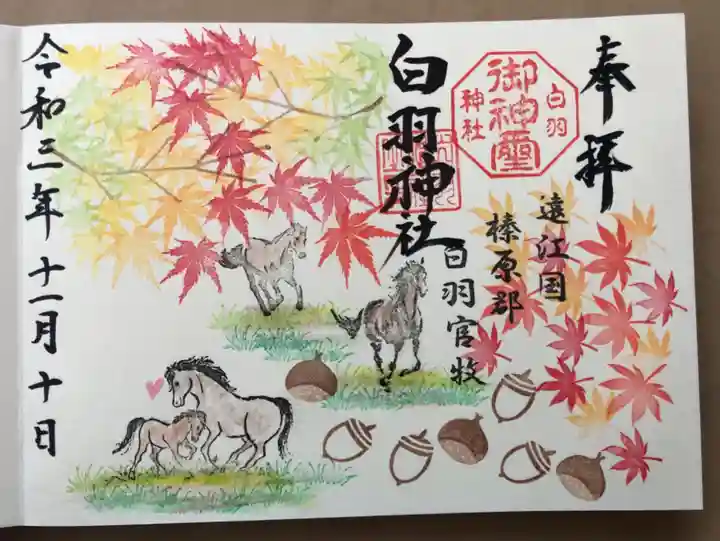 奉拝
御神璽
白羽
神社
遠江国
榛原郡
白羽官牧
白羽神社
令和三年十一月十日